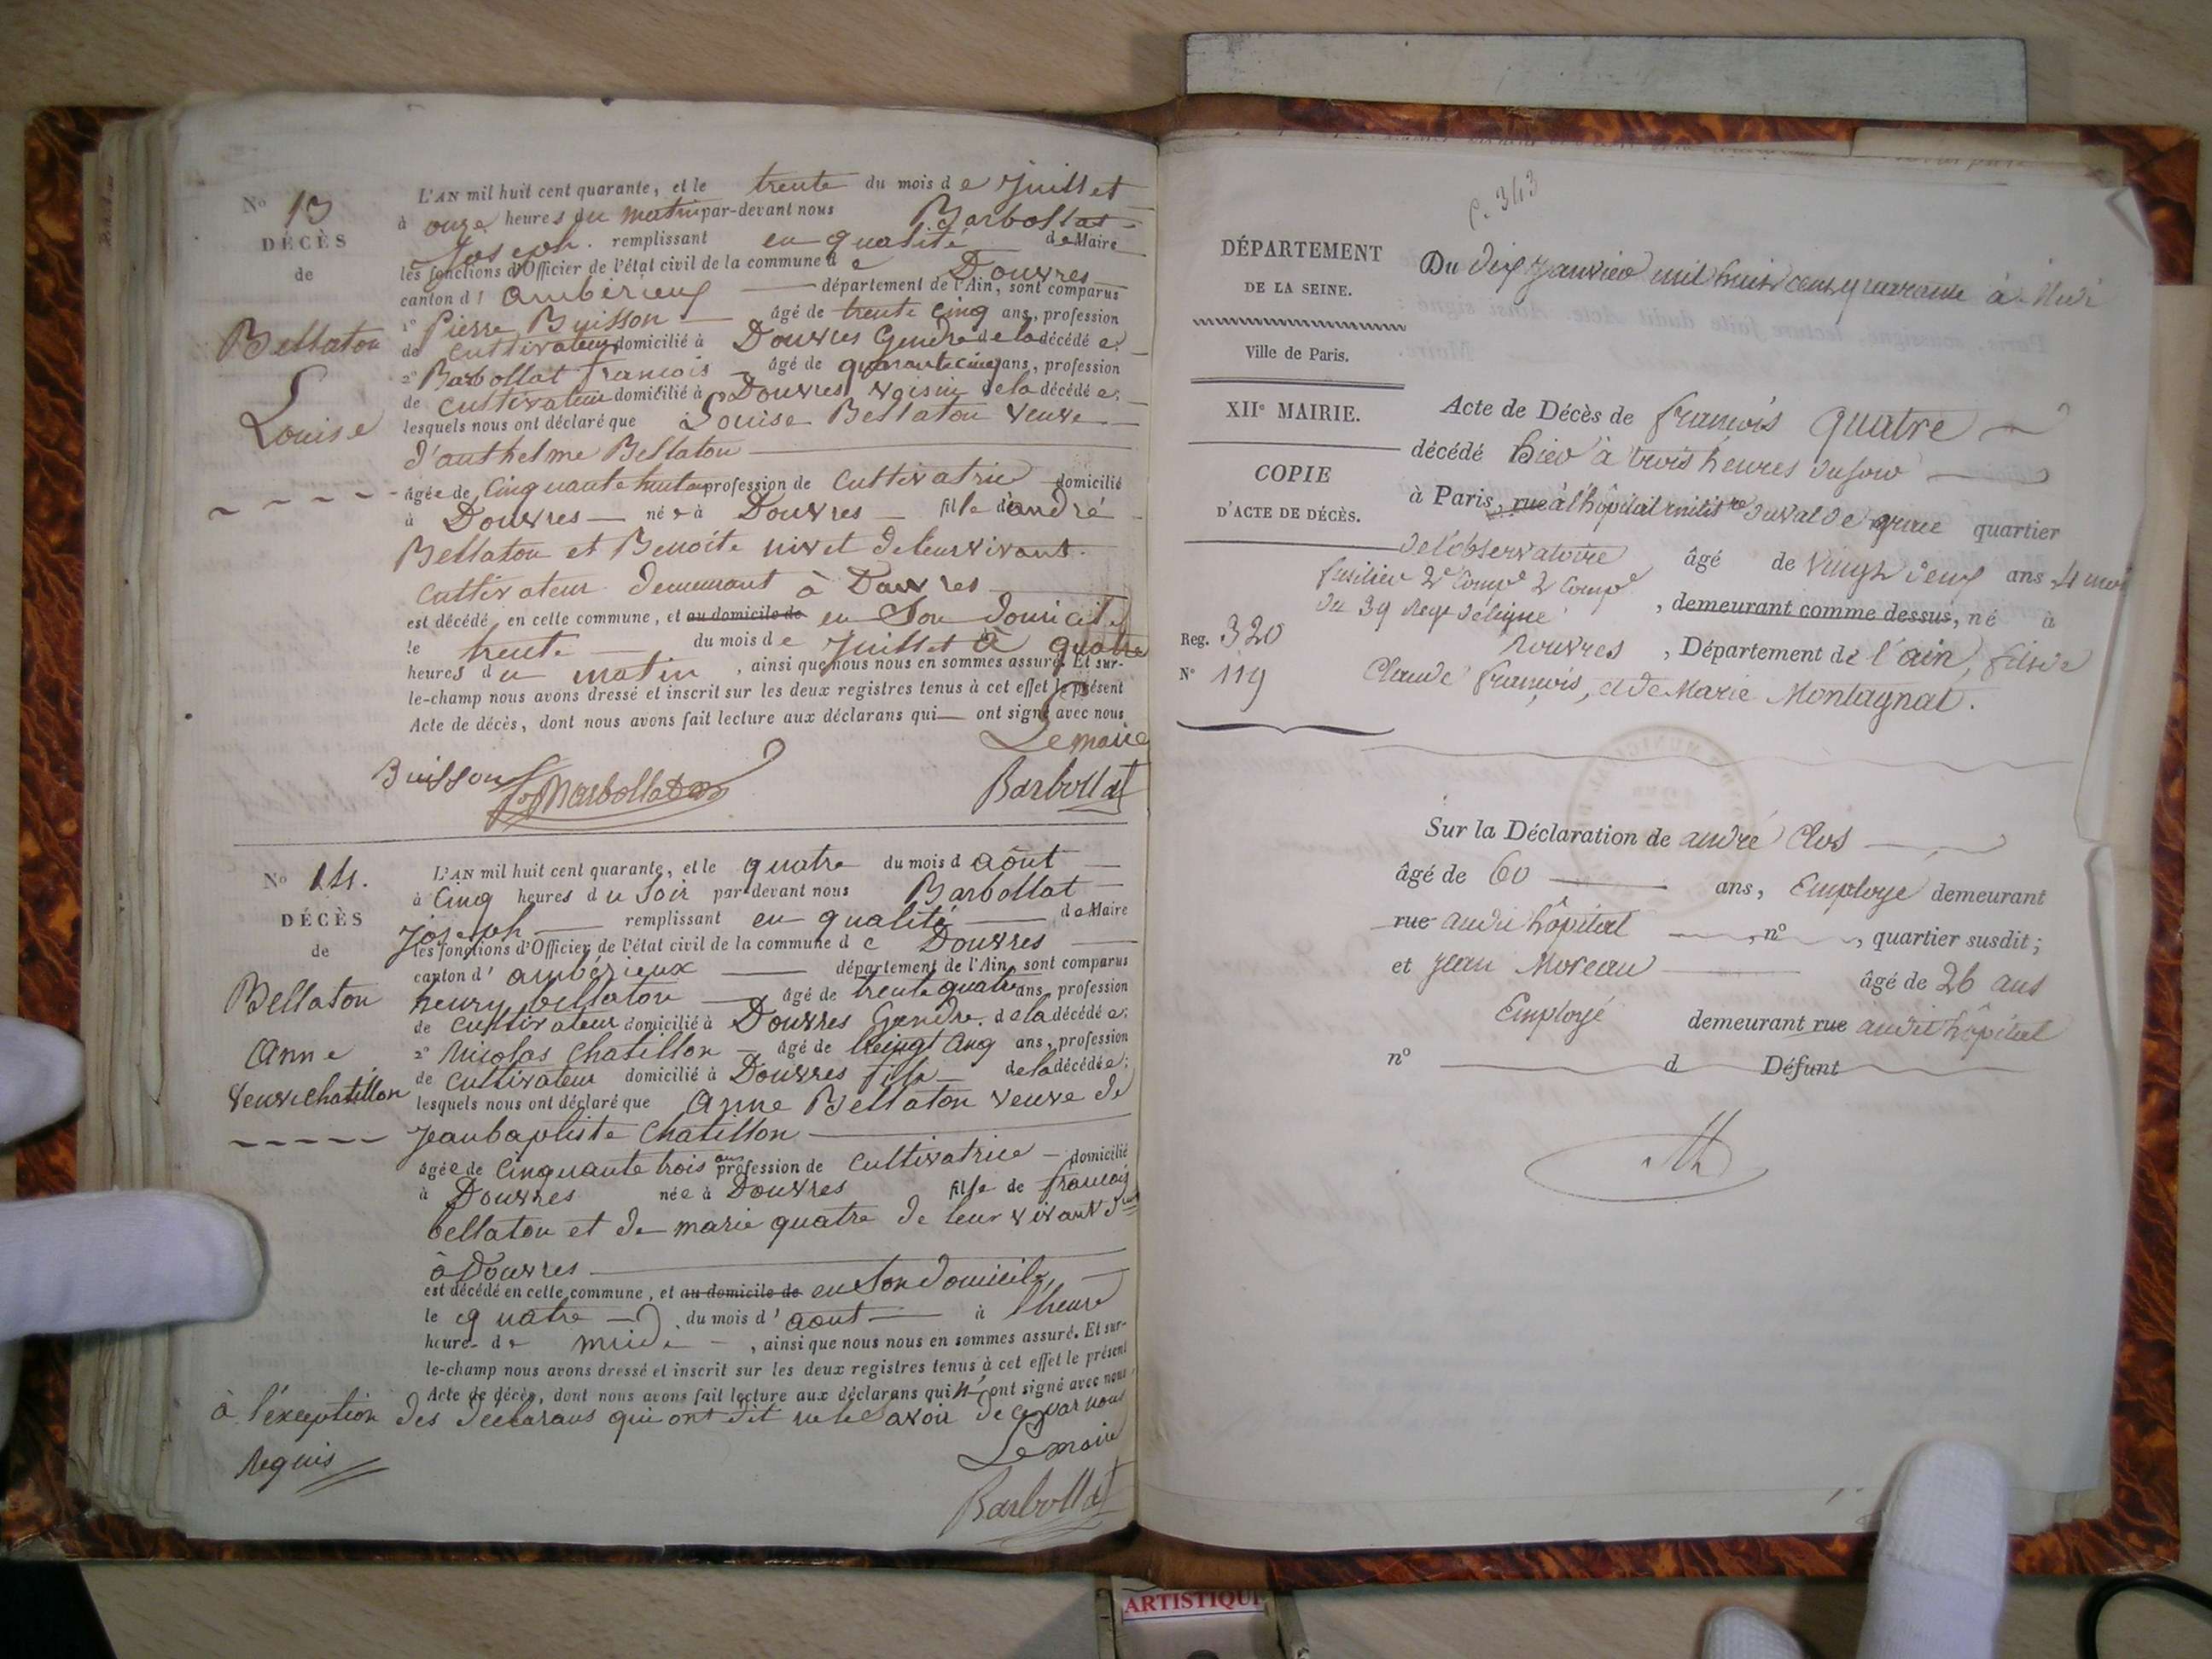 No 13
DÉCÈS
de
Bellaton
Louise
L'AN mil huit cent quarante, et le trente du mois de Juillet
à onze heures du matin par-devant nous Barbollat
Joseph. remplissant en qualité de Maire
les fonctions d'Officier de l'état civil de la commune de Douvres
canton d' ambérieux département de l'Ain, sont comparus
1° Pierre Buisson âgé de trente cinq ans, profession
de cultivateur domicilié à Douvres Gendre de la décédée.
2° Barbollat francois âgé de quarante cinq ans, profession
de cultivateur domicilié à Douvres voisin de la décédée;
lesquels nous ont déclaré que Louise Bellaton veuve
d'anthelme Bellaton
âgée de Cinquante huit ans profession de Cultivatrice domicilié
à Douvres née à Douvres fille d'andré
Bellaton et Benoite nivet de leur vivant
cultivateur demeurant à Douvres
est décédé en cette commune, et au domicile de en Son domicile
le trente du mois de Juillet à quatre
heures du matin, ainsi que nous nous en sommes assuré. Et sur-
le-champ nous avons dressé et inscrit sur les deux registres tenus à cet effet le présent
Acte de décès, dont nous avons fait lecture aux déclarans qui ont signé avec nous
Le maire
Buisson Barbollat Barbollat
No 14.
DÉCÈS
de
Bellaton
Anne
Veuve chatillon
L'AN mil huit cent quarante, et le quatre du mois d août
à Cinq heures du Soir par-devant nous Barbollat
Joseph remplissant en qualité de Maire
les fonctions d'Officier de l'état civil de la commune de Douvres
canton d' ambérieux département de l'Ain, sont comparus
henry bellaton âgé de trente quatre ans, profession
de cultivateur domicilié à Douvres Gendre de la décédée;
2° Nicolas Chatillon âgé de Vingt Cinq ans, profession
de cultivateur domicilié à Douvres fils de la décédée;
lesquels nous ont déclaré que Anne Bellaton veuve de
Jean baptiste Chatillon
âgée de Cinquante trois ans profession de Cultivatrice domicilié
à Douvres née à Douvres fille de francois
bellaton et de marie quatre de leur vivant
à Douvres
est décédé en cette commune, et au domicile de en Son domicile
le quatre du mois d' août à l'heure
heure de midi, ainsi que nous nous en sommes assuré. Et sur-
le-champ nous avons dressé et inscrit sur les deux registres tenus à cet effet le présent
Acte de décès, dont nous avons fait lecture aux déclarans qui n'ont signé avec nous
à l'exception des declarans qui ont dit ne le savoir de ce par nous
Requis
Le maire
Barbollat
DÉPARTEMENT
DE LA SEINE.
Ville de Paris.
XIIe MAIRIE.
COPIE
D'ACTE DE DÉCÈS.
Reg. 320
N° 119
Du dix Janvier mil huit cent quarante à Midi
Acte de Décès de François Quatre
décédé hier à trois heures du soir
à Paris, rue à l'hôpital milit re du val de grace quartier
de l'observatoire âgé de Vingt deux ans 4 mois
fusilier 2e Comp e
du 39 Reg t de ligne, demeurant comme dessus, né à
Rouvres, Département de l'ain, fils de
Claude François, et de Marie Montagnat.
Sur la Déclaration de andré Clos
âgé de 60 ans, Employé demeurant
rue audit hôpital, n°, quartier susdit;
et Jean Moreau âgé de 26 ans
Employé demeurant rue audit hôpital
n° d Défunt
ARTISTIQUE